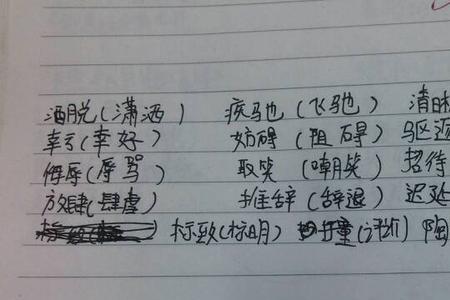 洒脱(潇洒) 疾驰(飞驰) 清
幸亏(幸好) 妨碍(阻碍) 驱逐
侮辱(辱骂) 取笑(嘲笑) 招待
放肆(肆虐) 推辞(辞退) 迟延
标致(标明) (评价) 陶